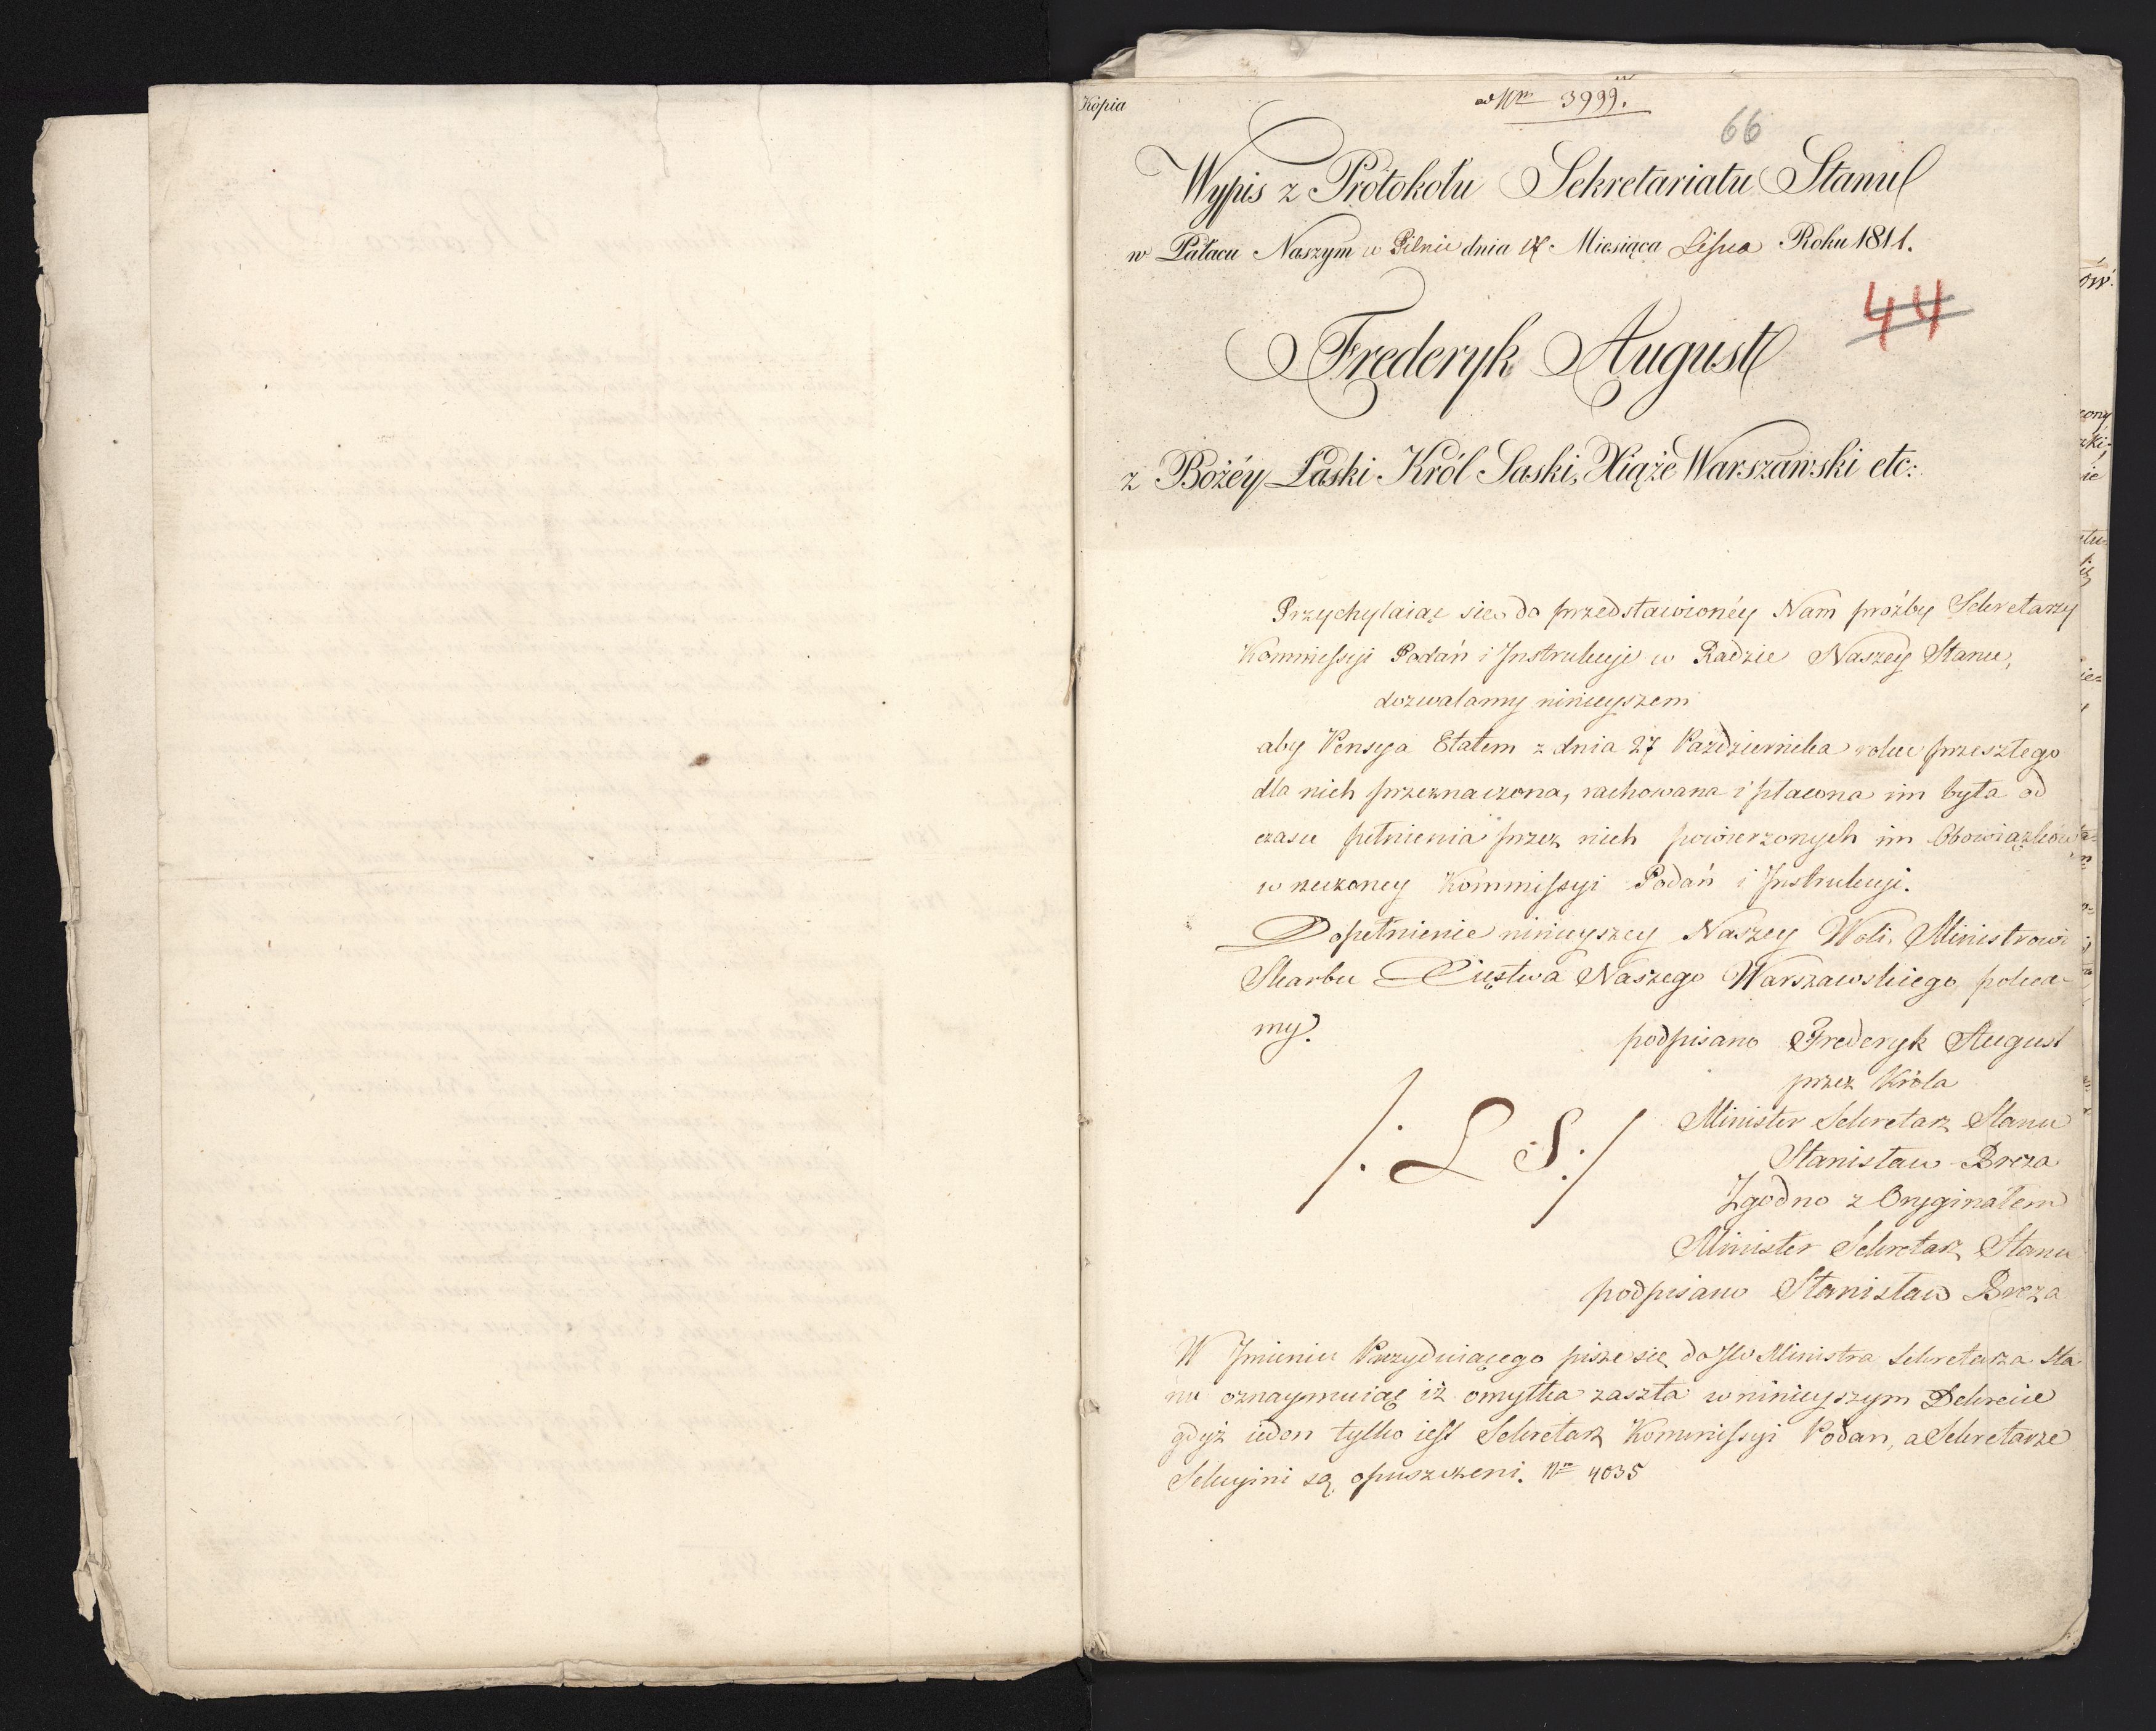 Kopia
ad Nrm 3999.
66
Wypis z Protokołu Sekretariatu Stanu
w Pałacu Naszym w Pilnic dnia 17. Miesiąca Lipca Roku 1811.
44
Frederyk August
z Bożéy Łaski Król Saski, Xiąże Warszawski etc:
Przychylaiąc się do przedstawionéy Nam proźby Sekretarzy
Kommissyi Podań i Instrukcyi w Radzie Naszey Stanu,
dozwalamy ninieyszem
aby Pensya Etatem z dnia 27 Października roku przeszłego
dla nich przeznaczona, rachowana i płacona im była od
czasu pełnienia przez nich powierzonych im Obowiązków
w rzeczoney Kommissyi Podań i Instrukcyi.
Dopełnienie ninieyszey Naszey Woli, Ministrowi
Skarbu Xięstwa Naszego Warszawskiego poleca-
my.
podpisano Frederyk August
przez Króla
Minister Sekretarz Stanu
Stanisław Breza
/: L S :/
Zgodno z Oryginałem
Minister Sekretarz Stanu
podpisano Stanisław Breza
W Imieniu Prezyduiącego pisze się do JW Ministra Sekretarza Sta
nu oznaymuiąc iż omyłka zaszła w ninieyszym Dekrecie
gdyż ieden tylko iest Sekretarz Kommissyi Podan, a Sekretarze
Sekcyini są opuszczeni. Nro 4035